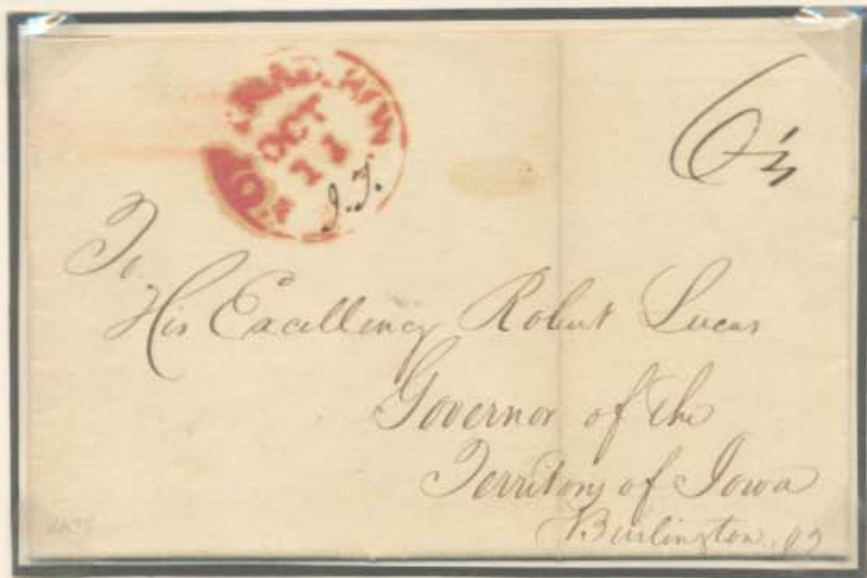 OCT
11
I.T.
6¼
To
His Excellency Robert Lucas
Governor of the
Territory of Iowa
Burlington